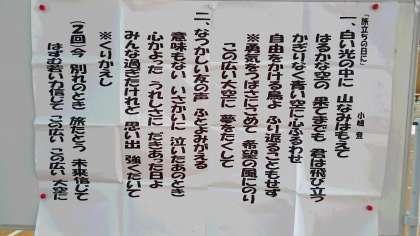 「旅立ちの日に」　小嶋　登
一、白い光の中に　山なみはもえて
はるかな空の　果てまでも　君は飛び立つ
かぎりなく青い空に心ふるわせ
自由をかける鳥よ　ふり返ることもせず
※勇気をつばさにこめて　希望の風にのり
この広い大空に　夢をたくして
二、なつかしい友の声　ふとよみがえる
意味もない　いさかいに　泣いたあのとき
心かよった　うれしさに　だきあった日よ
みんな過ぎたけれど　思い出　強くだいて
※くりかえし
(2回)今　別れのとき　旅立とう　未来信じて
はずむ若い力信じて　この広い　この広い　大空に